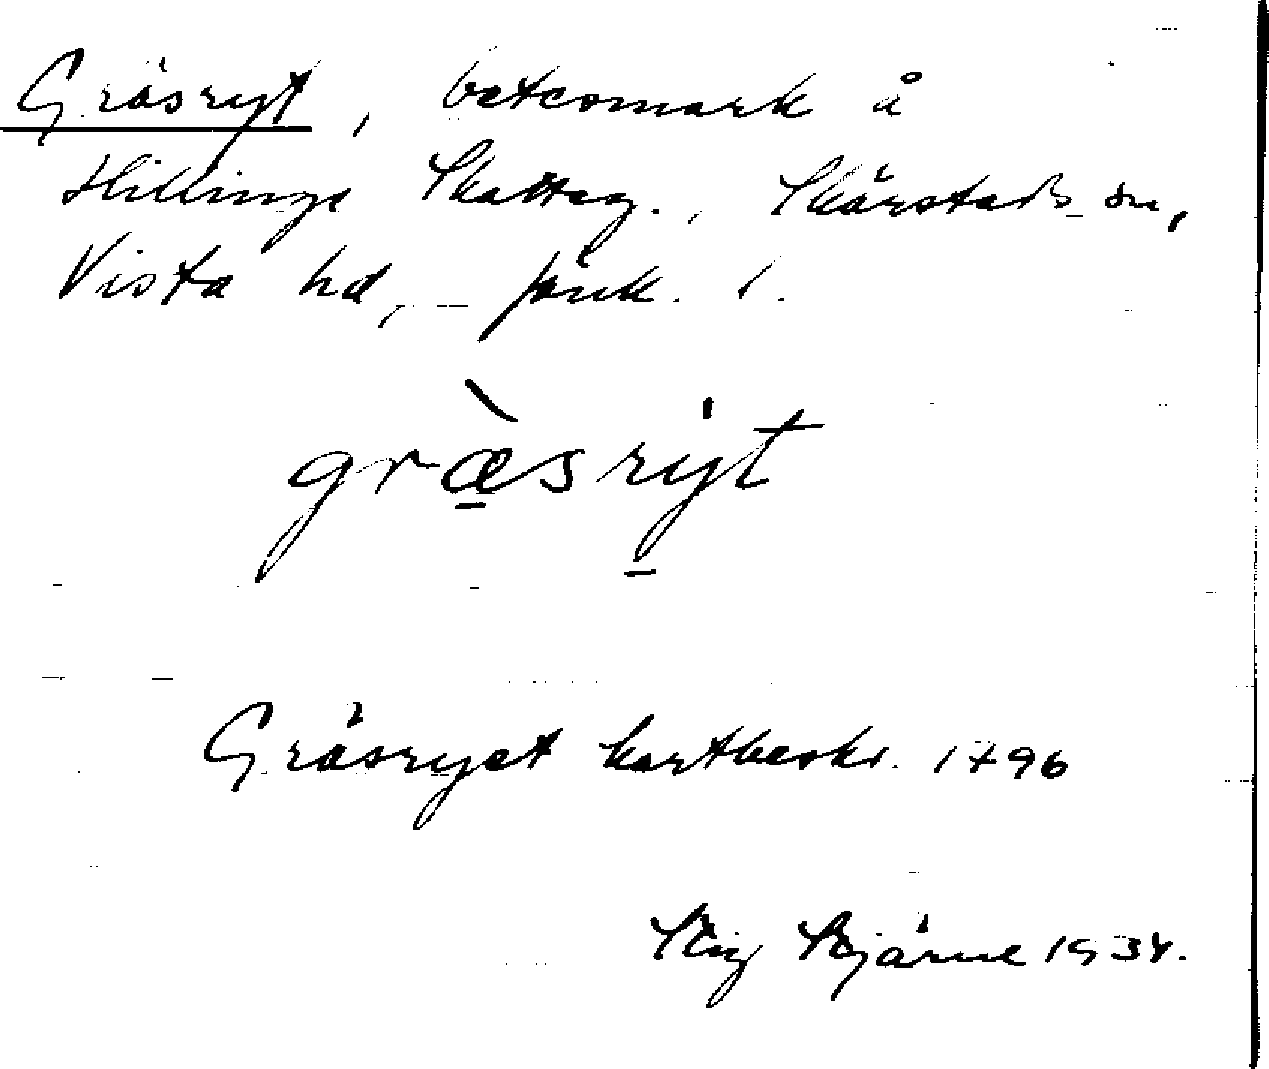 Gräsryt, betesmark å
Hillinge Skatteg., Skärstads sn,
Vista hd, Jönk. l.
græ̀sryt
Gräsryet kartbeskr. 1796
Stig Stjärne 1934.